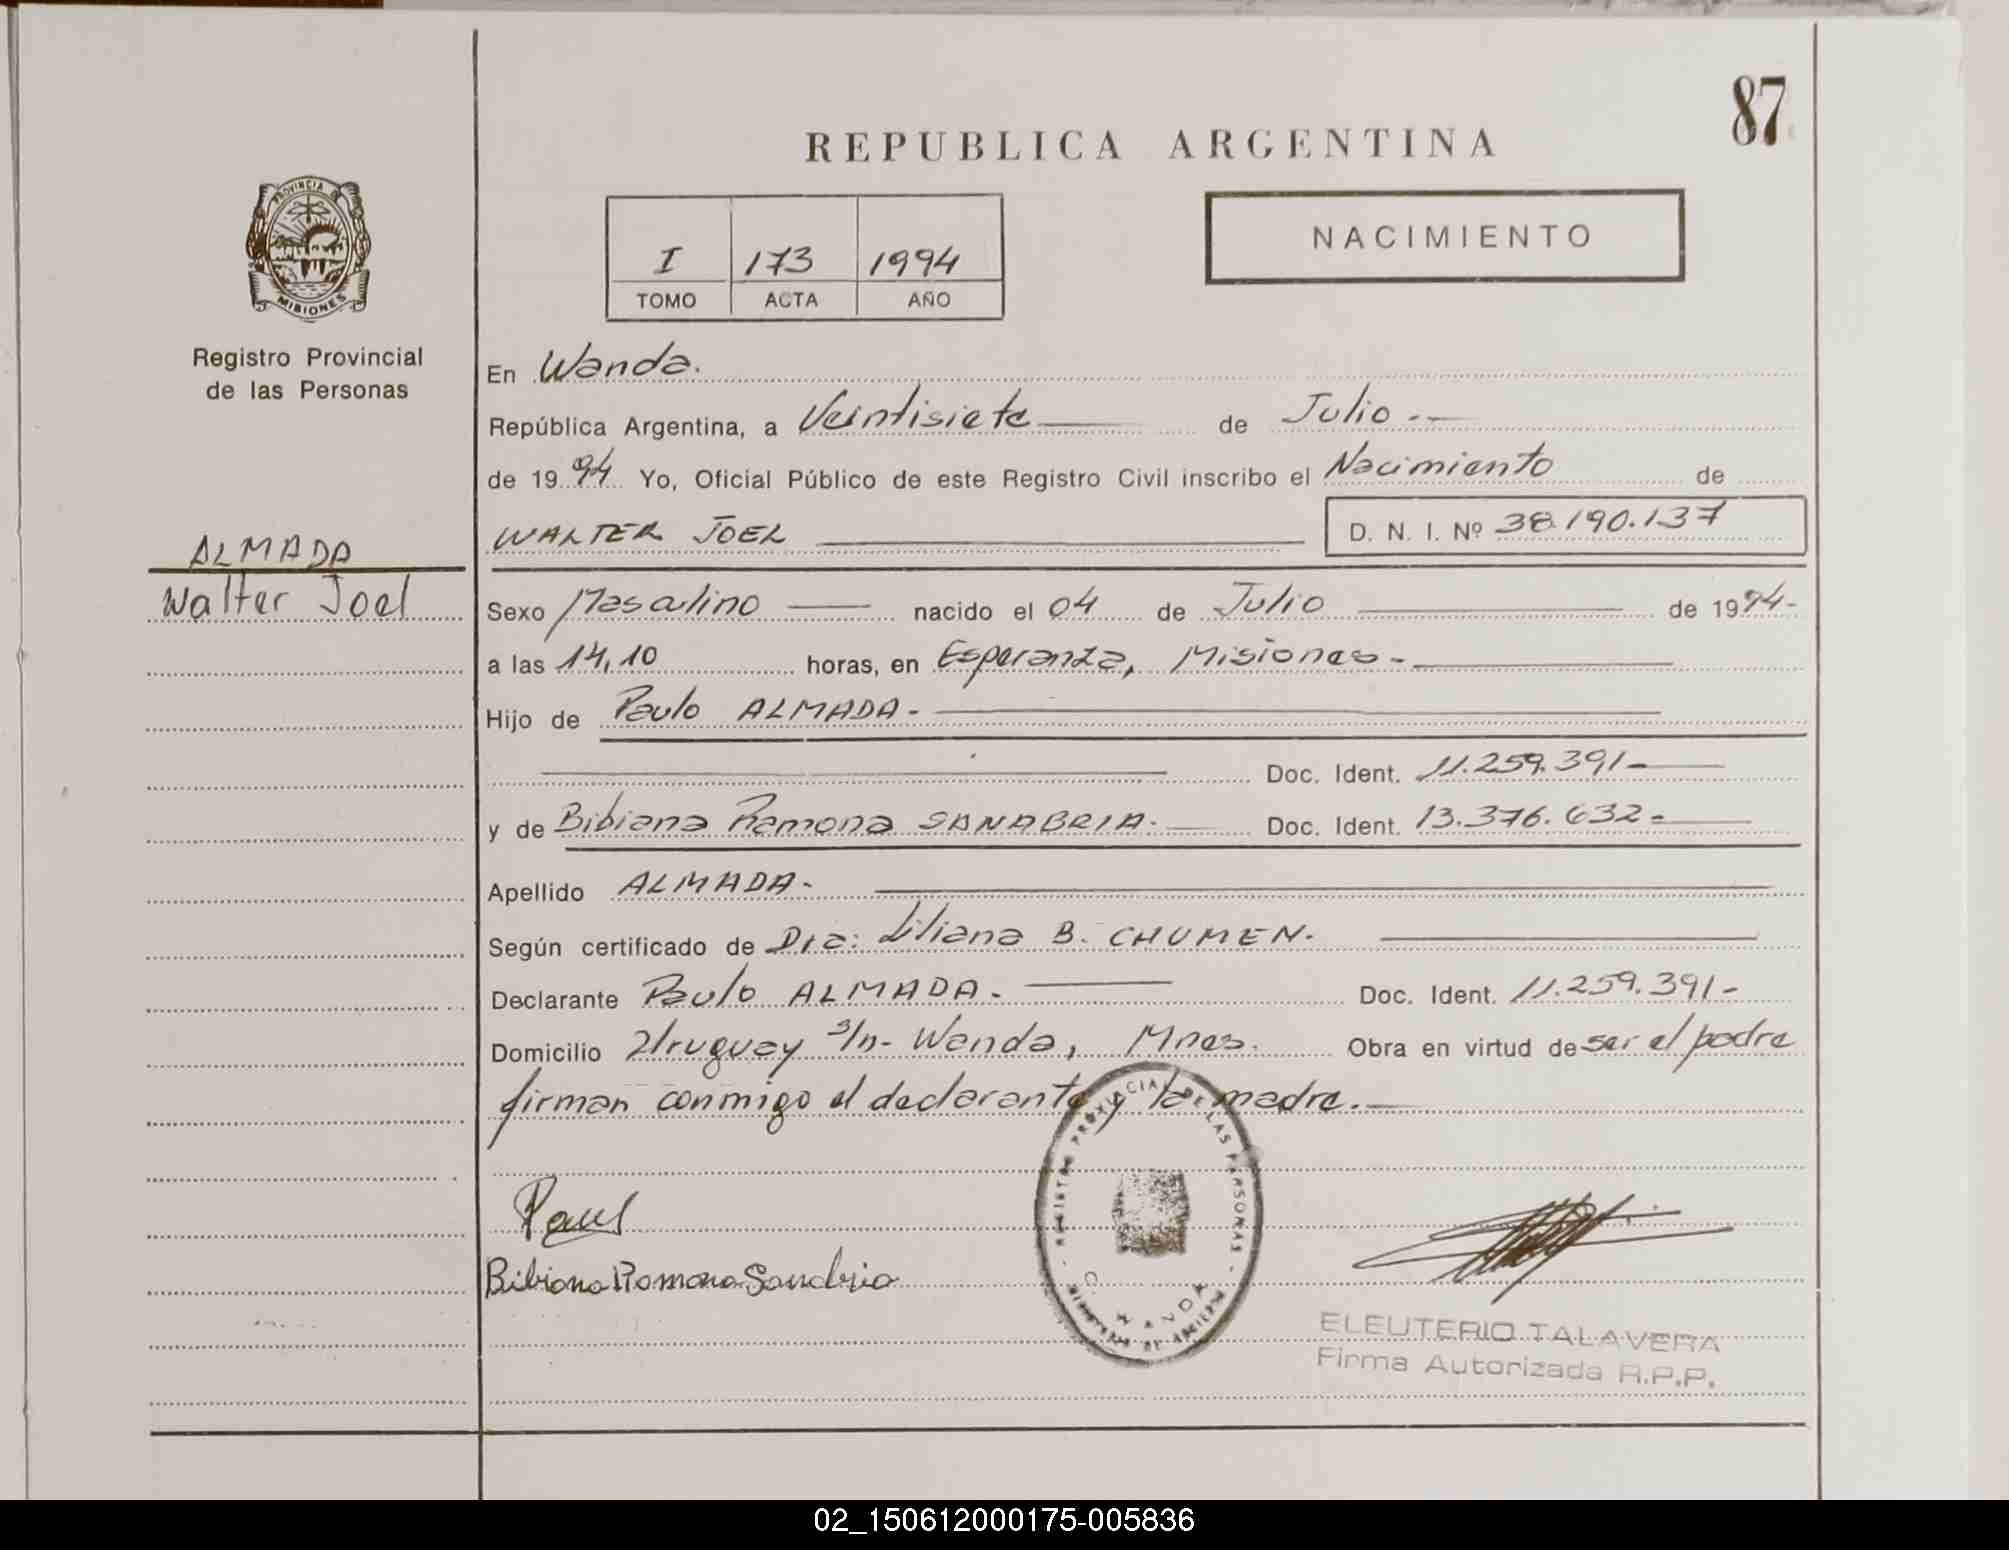 87
REPUBLICA ARGENTINA
PROVINCIA DE
MISIONES
I 173 1994
TOMO ACTA AÑO
NACIMIENTO
Registro Provincial
de las Personas
En Wanda.
República Argentina, a Veintisiete de Julio.-
de 1994 Yo, Oficial Público de este Registro Civil inscribo el Nacimiento de
WALTER JOEL D. N. I. Nº 38.190.137
ALMADA
Walter Joel
Sexo Masculino nacido el 04 de Julio de 1994-
a las 14,10 horas, en Esperanza, Misiones-
Hijo de Paulo ALMADA-
Doc. Ident. 11.259.391-
y de Bibiana Ramona SANABRIA- Doc. Ident. 13.376.632-
Apellido ALMADA-
Según certificado de Dra: Liliana B. CHUMEN.
Declarante Paulo ALMADA- Doc. Ident. 11.259.391-
Domicilio Uruguay s/n- Wanda, Mnes. Obra en virtud de ser el padre
firman conmigo el declarante y la madre.-
REGISTRO PROVINCIAL DE LAS PERSONAS
WANDA
Paul
Bibiana Romona Sanabria
ELEUTERIO TALAVERA
Firma Autorizada R.P.P.
02_150612000175-005836